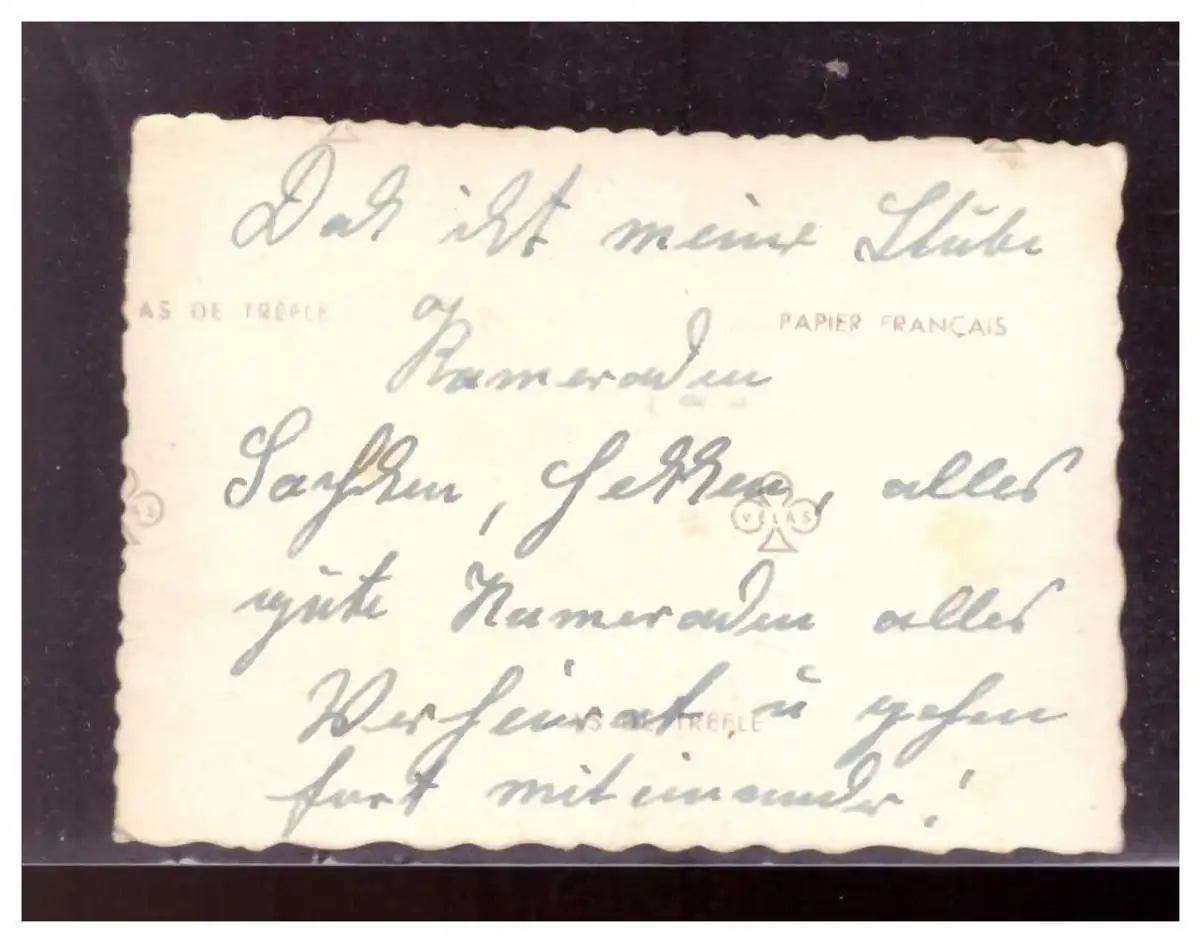 Das ist meine Stube
AS DE TRÈFLE PAPIER FRANÇAIS
Kameraden
Sachsen, Hessen, alles
VELAS
gute Kameraden alles
Verheirat u gehen
AS DE TRÈFLE
fort miteinander!